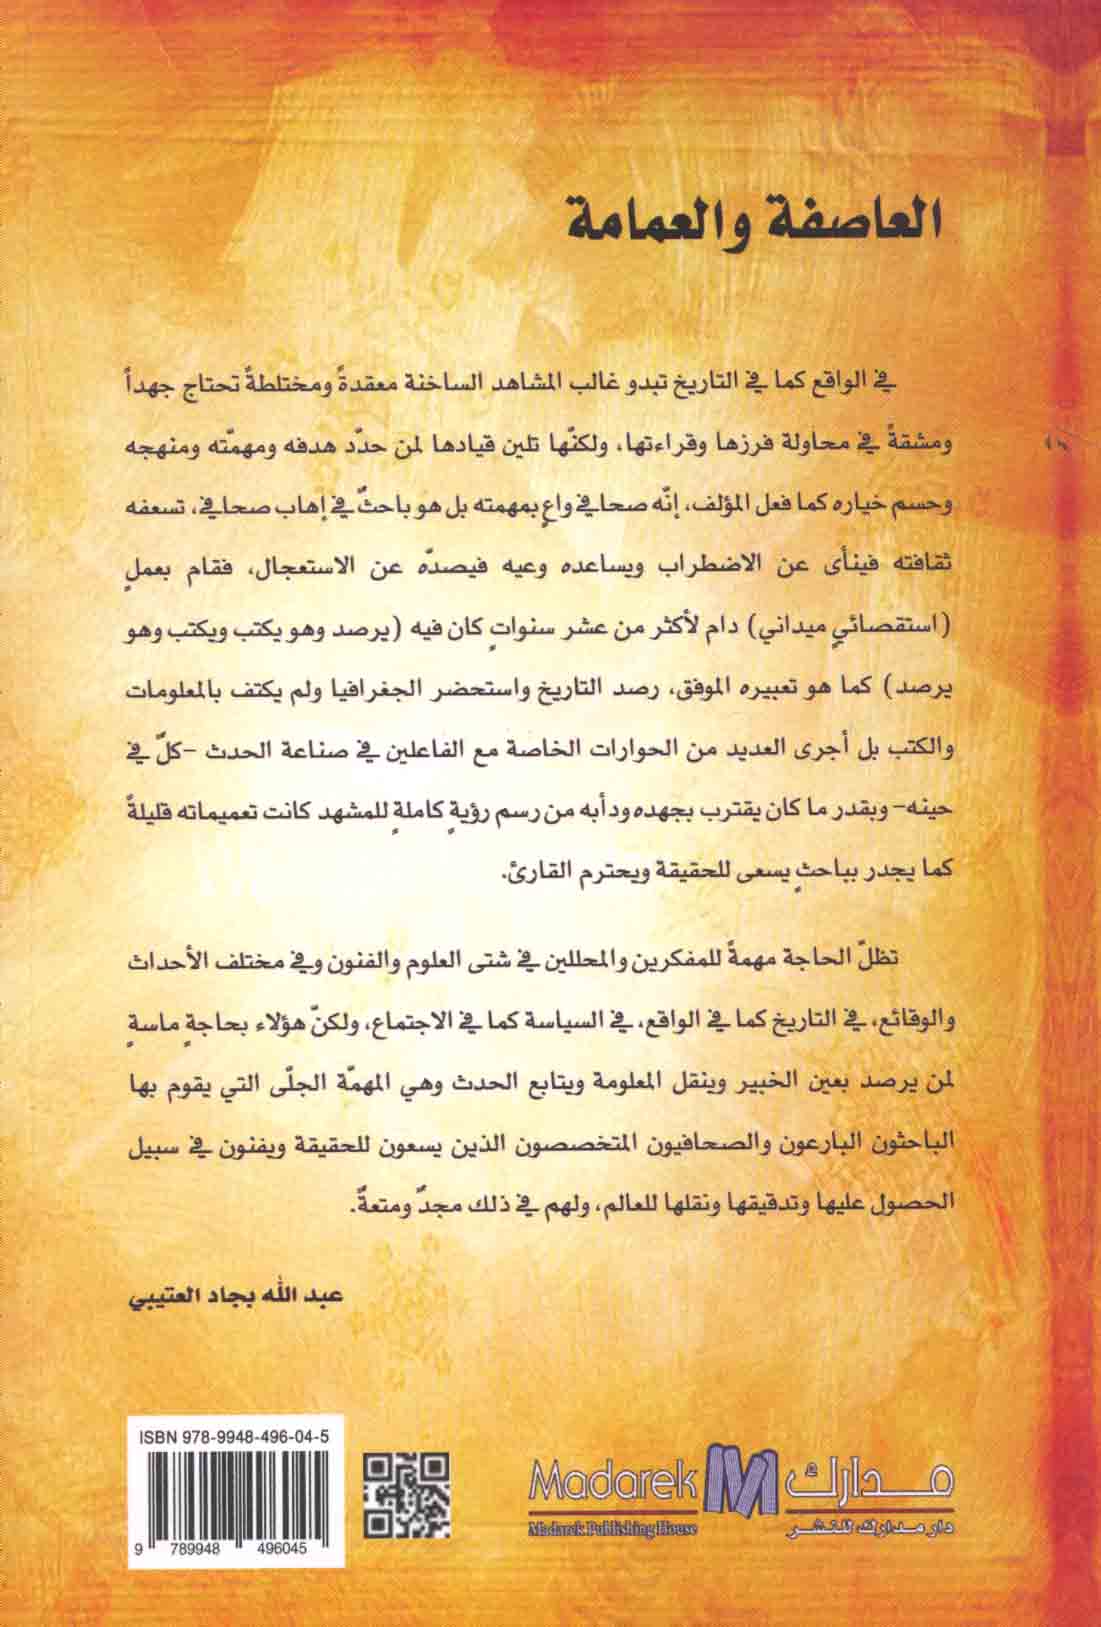 العاصفة والعمامة
في الواقع كما في التاريخ تبدو غالب المشاهد الساخنة معقدةً ومختلطةً تحتاج جهداً
ومشقةً في محاولة فرزها وقراءتها، ولكنّها تلين قيادها لمن حدّد هدفه ومهمّته ومنهجه
وحسم خياره كما فعل المؤلف، إنّه صحافي واعٍ بمهمته بل هو باحثٌ في إهاب صحافي، تسعفه
ثقافته فينأى عن الاضطراب ويساعده وعيه فيصدّه عن الاستعجال، فقام بعملٍ
(استقصائيٍ ميداني) دام لأكثر من عشر سنواتٍ كان فيه (يرصد وهو يكتب ويكتب وهو
يرصد) كما هو تعبيره الموفق، رصد التاريخ واستحضر الجغرافيا ولم يكتف بالمعلومات
والكتب بل أجرى العديد من الحوارات الخاصة مع الفاعلين في صناعة الحدث -كلّ في
حينه- وبقدر ما كان يقترب بجهده ودأبه من رسم رؤيةٍ كاملةٍ للمشهد كانت تعميماته قليلةً
كما يجدر بباحثٍ يسعى للحقيقة ويحترم القارئ.
تظلّ الحاجة مهمةً للمفكرين والمحللين في شتى العلوم والفنون وفي مختلف الأحداث
والوقائع، في التاريخ كما في الواقع، في السياسة كما في الاجتماع، ولكنّ هؤلاء بحاجةٍ ماسةٍ
لمن يرصد بعين الخبير وينقل المعلومة ويتابع الحدث وهي المهمّة الجلّى التي يقوم بها
الباحثون البارعون والصحافيون المتخصصون الذين يسعون للحقيقة ويفنون في سبيل
الحصول عليها وتدقيقها ونقلها للعالم، ولهم في ذلك مجدٌ ومتعةٌ.
عبد الله بجاد العتيبي
ISBN 978-9948-496-04-5
9 789948 496045
Madarek مدارك
Madarek Publishing House دار مدارك للنشر